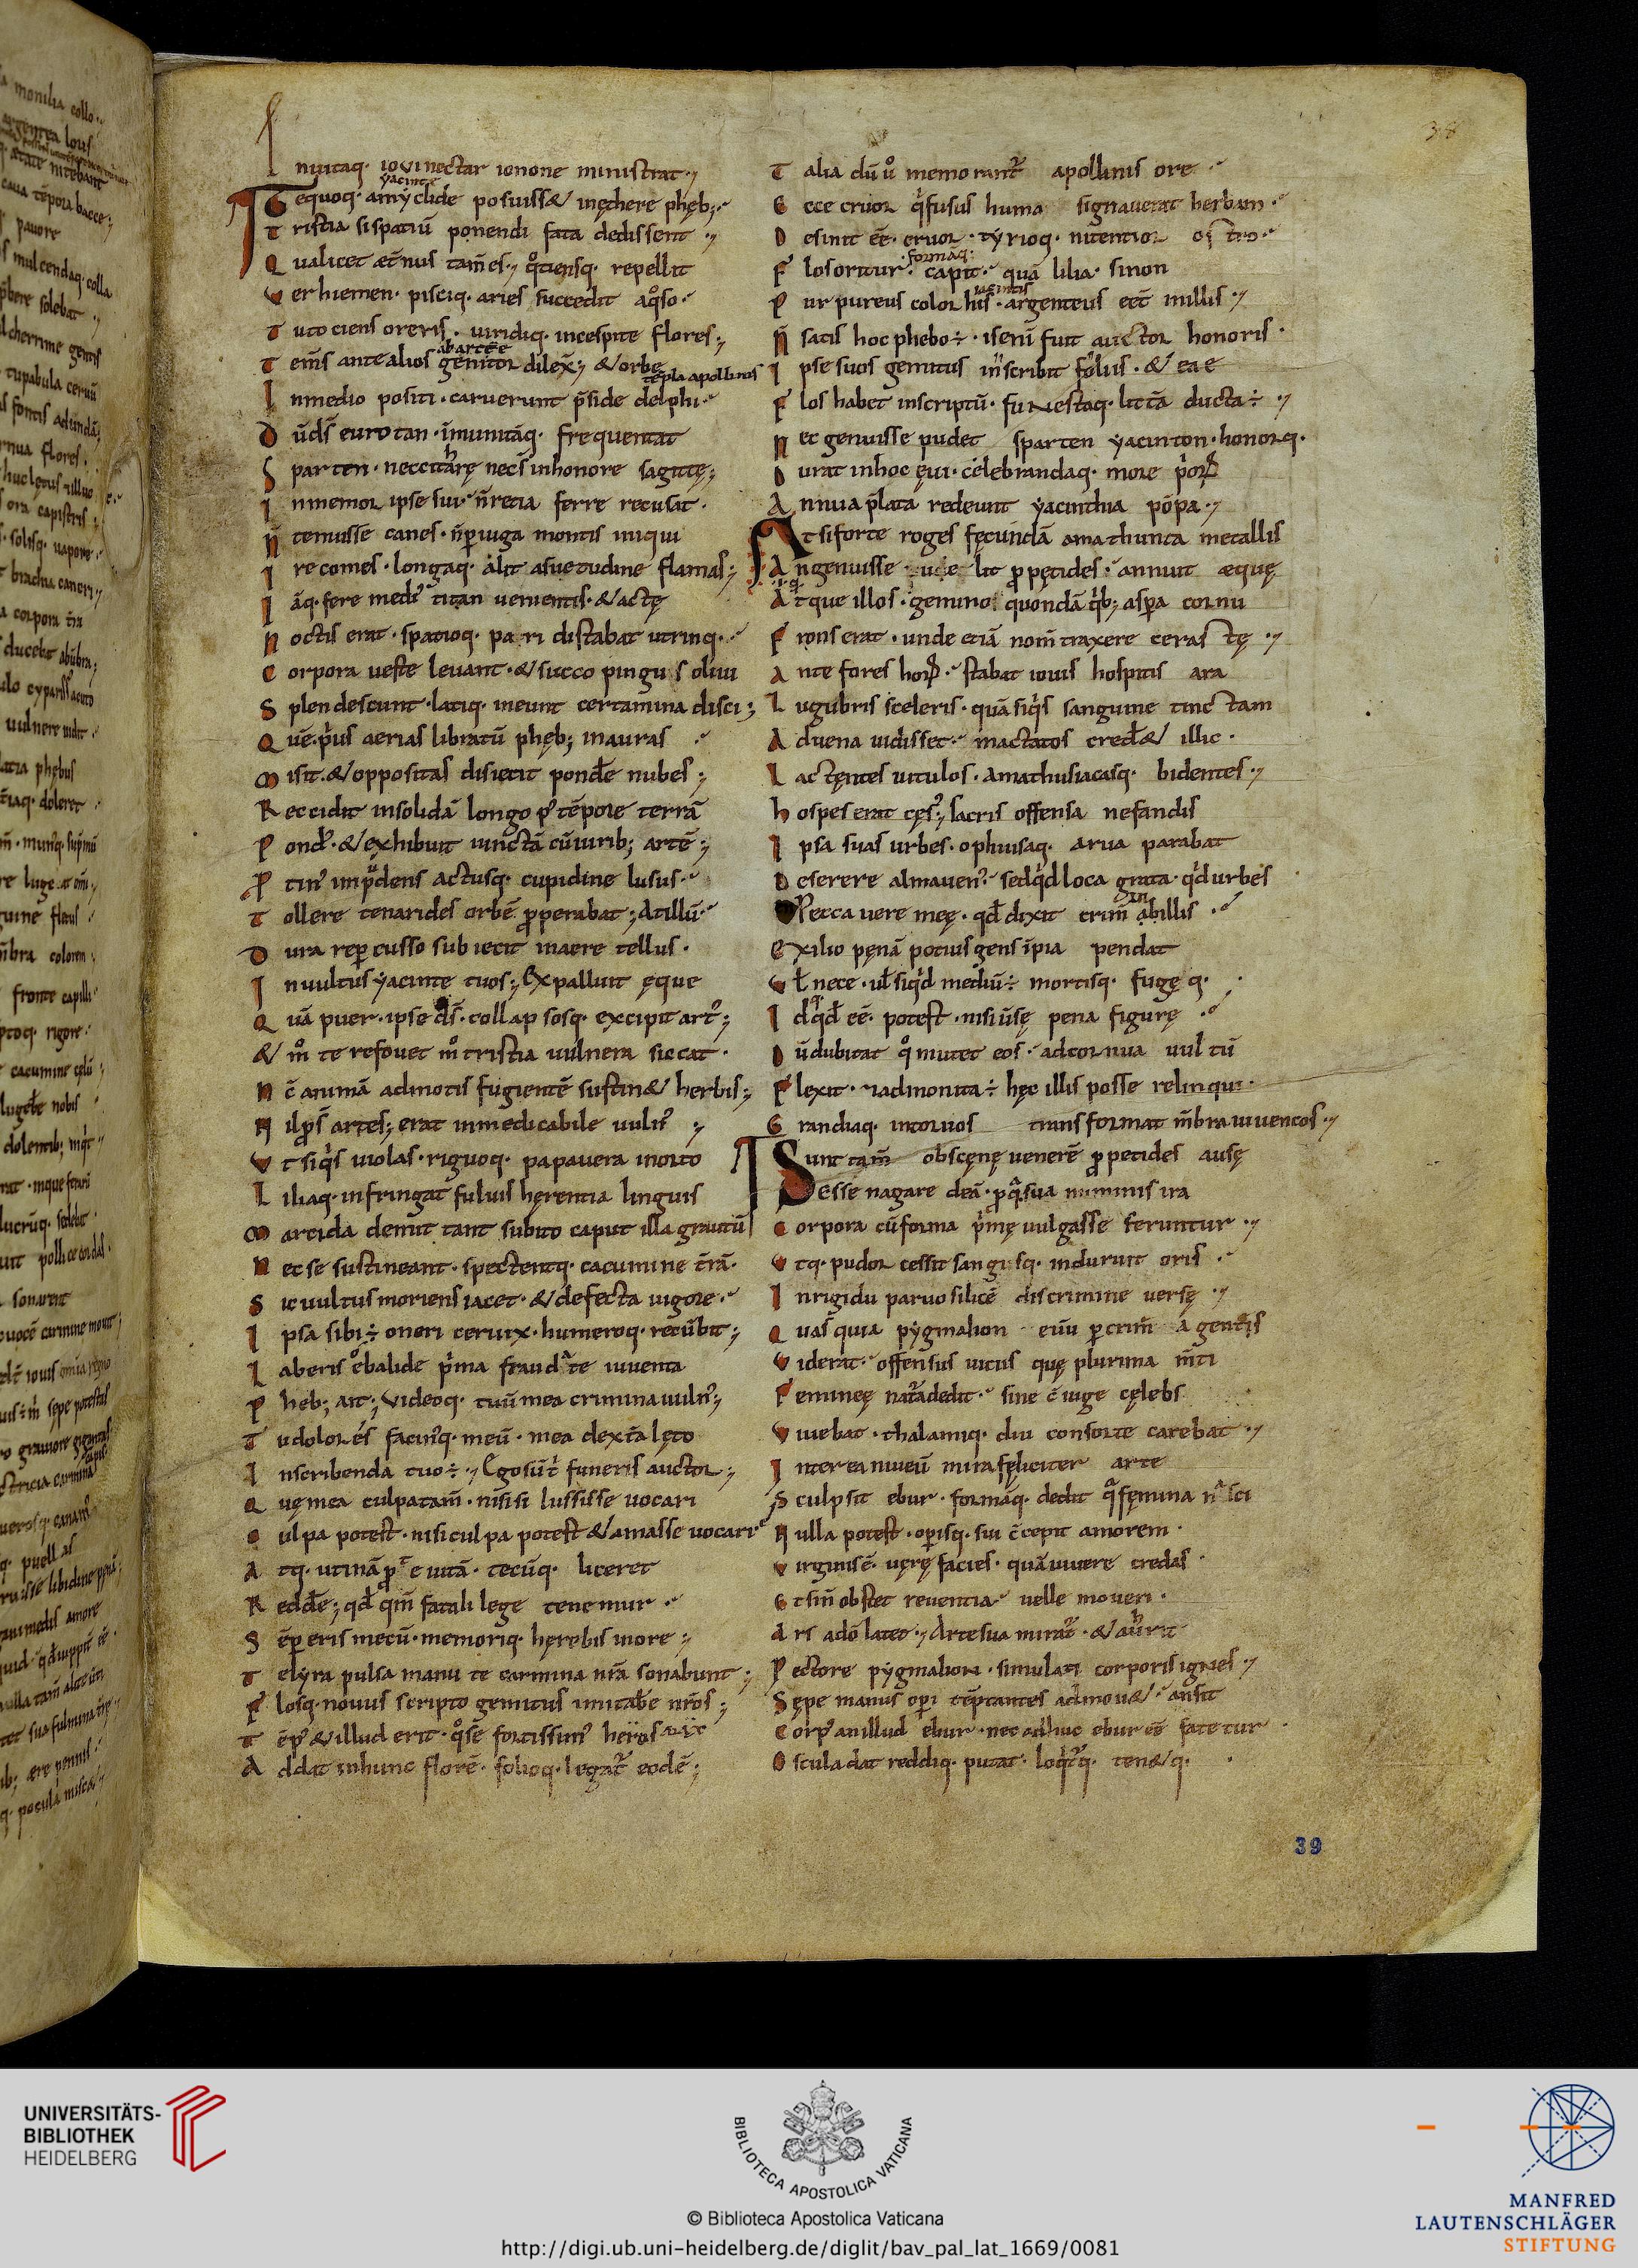 38
Inuitaq. ioui nectar iunone ministrat
yacinte
Te quoq. amyclide posuiss& in ęthere phęb;
Tristia si spatiū ponendi fata dedissent
Qualicet æt̄nus tam̄ es q̊tiensq. repellit
Ver hiemen. pisciq. aries succedit aq̊so
Tuto ciens oreris. uiridiq. incespite flores;
Tem̄s ante alios genitor dilex̄; & orbe
templa apollinis
Inmedio positi. caruerunt p̄side delphi
Dūds eurotan. immunitāq. frequentat
Sparten. nec citharę nec s̄ inhonore sagittę;
Inmemor ipse sui n̄ retia ferre recusat.
N̄ tenuisse canes. n̄ p iuga montis iniqui
Ire comes. longaq. alit asuetudine flamas;
Iāq. fere medi' titan uenientis. & actę
Noctis erat. spatioq. pari distabat utrinq.
Corpora ueste leuant. & succo pinguis oliui
Splendescunt. latiq. ineunt certamina disci;
Quē p'us aerias libratū phęb; inauras
Misit. & oppositas disiecit pond̄e nubes;
Reccidit insolidā longo p' tēpore terrā
Pond'. & exhibuit iunctā cū uirib; artē;
Ptin' imp̄dens actusq. cupidine lusus
Tollere tenarides orbē pperabat; At illū
Dura repcusso subiecit inaere tellus.
Inuultus yacinte tuos; Expalluit ęque
Quā puer. ipse ds̄. collapsosq. excipit art';
& m̊ te refouet m̊ tristia uulnera siccat.
Nc̄ animā admotis fugientē sustin& herbis;
Nil ps̄ artes; erat inmedicabile uuln'
Vt siq's uiolas. riguoq. papauera inorto
Liliaq. infringat fuluis hęrentia linguis
Marcida demittant subito caput illa grauatū
Nec se sustineant. spectentq. cacumine t̄rā.
Sic uultus moriens iacet. & defecta uigore
Ipsa sibi ÷ oneri ceruix. humeroq. recūbit;
Laberis œbalide p'ma fraudate iuuenta
Pheb; ait; Videoq. tuū mea crimina uuln';
Tu dolor és facin'q. meū. mea dext̄a lęto
Inscribenda tuo ÷ Ego sū t' funeris auctor;
Quę mea culpa tam̄. nisi si lussisse uocari
Culpa potest. nisi culpa potest & amasse uocari
Atq. utinā p te uitā. tecūq. liceret
Redd̄e; qd̄ qm̄ fatali lege tenemur
Sēp eris mecū. memoriq. hęrebis in ore;
Te lyra pulsa manu te carmina nr̄a sonabunt;
Flosq. nouus scripto gemitus imitabe nr̄os;
Tēp' & illud erit. q̊ sē fortissim' heros
Addat inhunc florē. folioq. legat̄ eodē;
Talia dū ů memorant̄ apollinis ore
Ecce cruor q' fusus humo signauerat herbam
Desinit eē. cruor. tyrioq. nitentior ostro
formāq.
Flos oritur. capit. quā lilia. sinon
iacintis
Purpureus color his. argenteus eēt inillis
N̄ satis hoc phebo ÷. is enī fuit auctor honoris.
Ipse suos gemitus inscribit foliis. & ea e
Flos habet inscriptū. funestaq. litt̄a ducta ÷
Nec genuisse pudet sparten yacinton. honorq.
Durat inhoc ęui. celebrandaq. more p'or
Annua p̄lata redeunt yacinthia pōpa
At siforte roges fęcundā amathunta metallis
An genuisse uelit ppętides. annuit æquę
Atque illos. gemino quondā q'b; aspa cornu
Frons erat. unde etiā nom̄ traxere cerastę
Ante fores hor. stabat iouis hospitis ara
Lugubris sceleris. quā siq's sanguine tinctam
Aduena uidisset. mactatos cred& illic.
Lactęntes uitulos. amathusiacasq. bidentes
Hospes erat cęs'; sacris offensa nefandis
Ipsa suas urbes. ophiusaq. arua parabat
Deserere alma uen'. sed q'd loca grata. q'd urbes
Peccauere meę. qd̄ dixit crim̄ abillis
Exilio pęnā potius gens īpia pendat
Vl̄ nece. ul̄ siq'd mediū ÷ mortisq. fugęq.
Idq'd eē. potest. nisi u̅sę pena figurę
Dū dubitat q̊ mutet eos. adcornua uultū
Flexit. & admonita ÷ hęc illis posse relinqui.
Grandiaq. intoruos transformat m̄bra iuuencos
Sunt tam̄ obscęnę uenerē ppetides ausę
Esse nagare deā. p q̄ sua numinis ira
Corpora cū forma p'mę uulgasse feruntur
Vtq. pudor cessit sanguisq. induruit oris
Inrigidū paruo silicē discrimine uersę
Quas quia pygmalion euū p crim̄ agentis
Viderat. offensus uitiis quę plurima m̄ti
Femineę natura dedit. sine c̄iuge cęlebs
Viuebat. thalamiq. diu consorte carebat
Interea niueū mira fęliciter arte
Sculpsit ebur. formāq. dedit q̄ fęmina nasci
Nulla potest. opisq. sui c̄cepit amorem.
Virginis ē. uęrę facies. quā uiuere credas
Et sin̄ obstet reuentia uelle moueri.
Ars adō latet Arte sua mirat̄. & haurit
Pectore pygmalion. simulati corporis ignes
Sępe manus opi tēptantes admou& an sit
Corp' anillud ebur. nec adhuc ebur eē fatetur
Oscula dat reddiq. putat. loq'turq. ten&q.
39
UNIVERSITÄTS-
BIBLIOTHEK
HEIDELBERG
BIBLIOTECA APOSTOLICA VATICANA
© Biblioteca Apostolica Vaticana
http://digi.ub.uni-heidelberg.de/diglit/bav_pal_lat_1669/0081
MANFRED
LAUTENSCHLÄGER
STIFTUNG